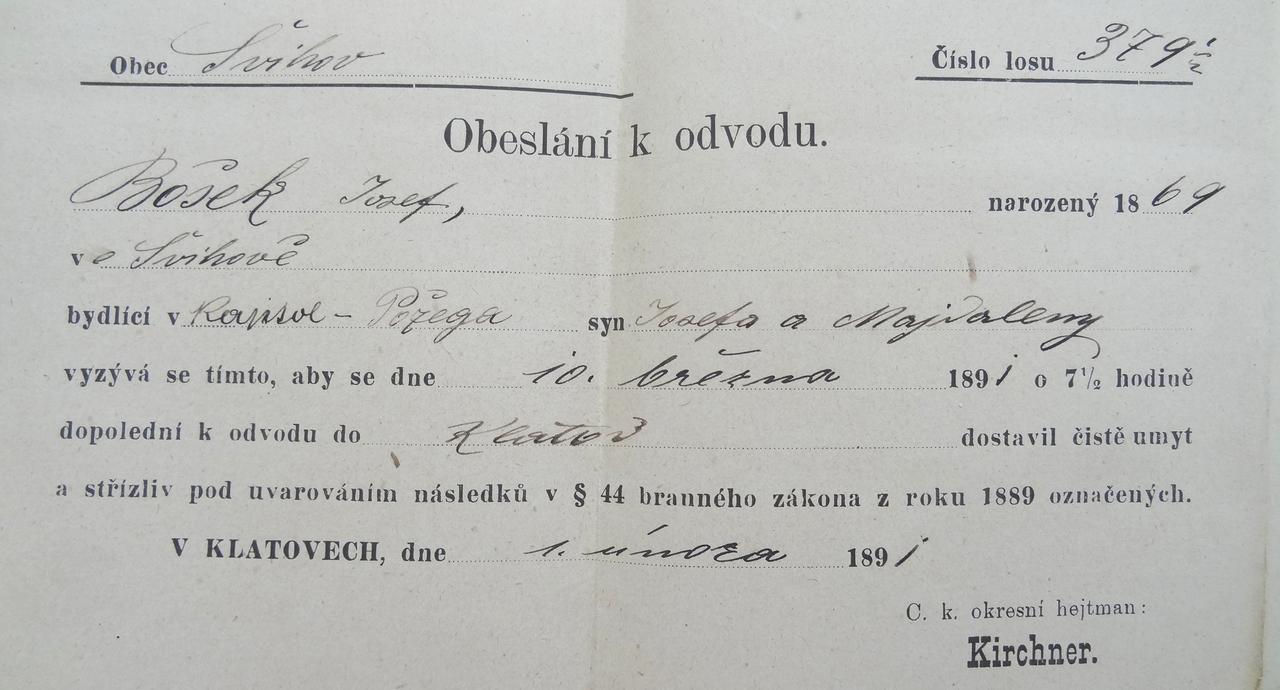 Obec Švihov Číslo losu 379 1/2
Obeslání k odvodu.
Bošek Josef, narozený 1869
ve Švihově
bydlící v - Požega syn Josefa a Majdaleny
vyzývá se tímto, aby se dne 10. března 1891 o 7 1/2 hodině
dopolední k odvodu do Klatov dostavil čistě umyt
a střízliv pod uvarováním následků v § 44 branného zákona z roku 1889 označených.
V KLATOVECH, dne 1. února 1891
C. k. okresní hejtman:
Kirchner.